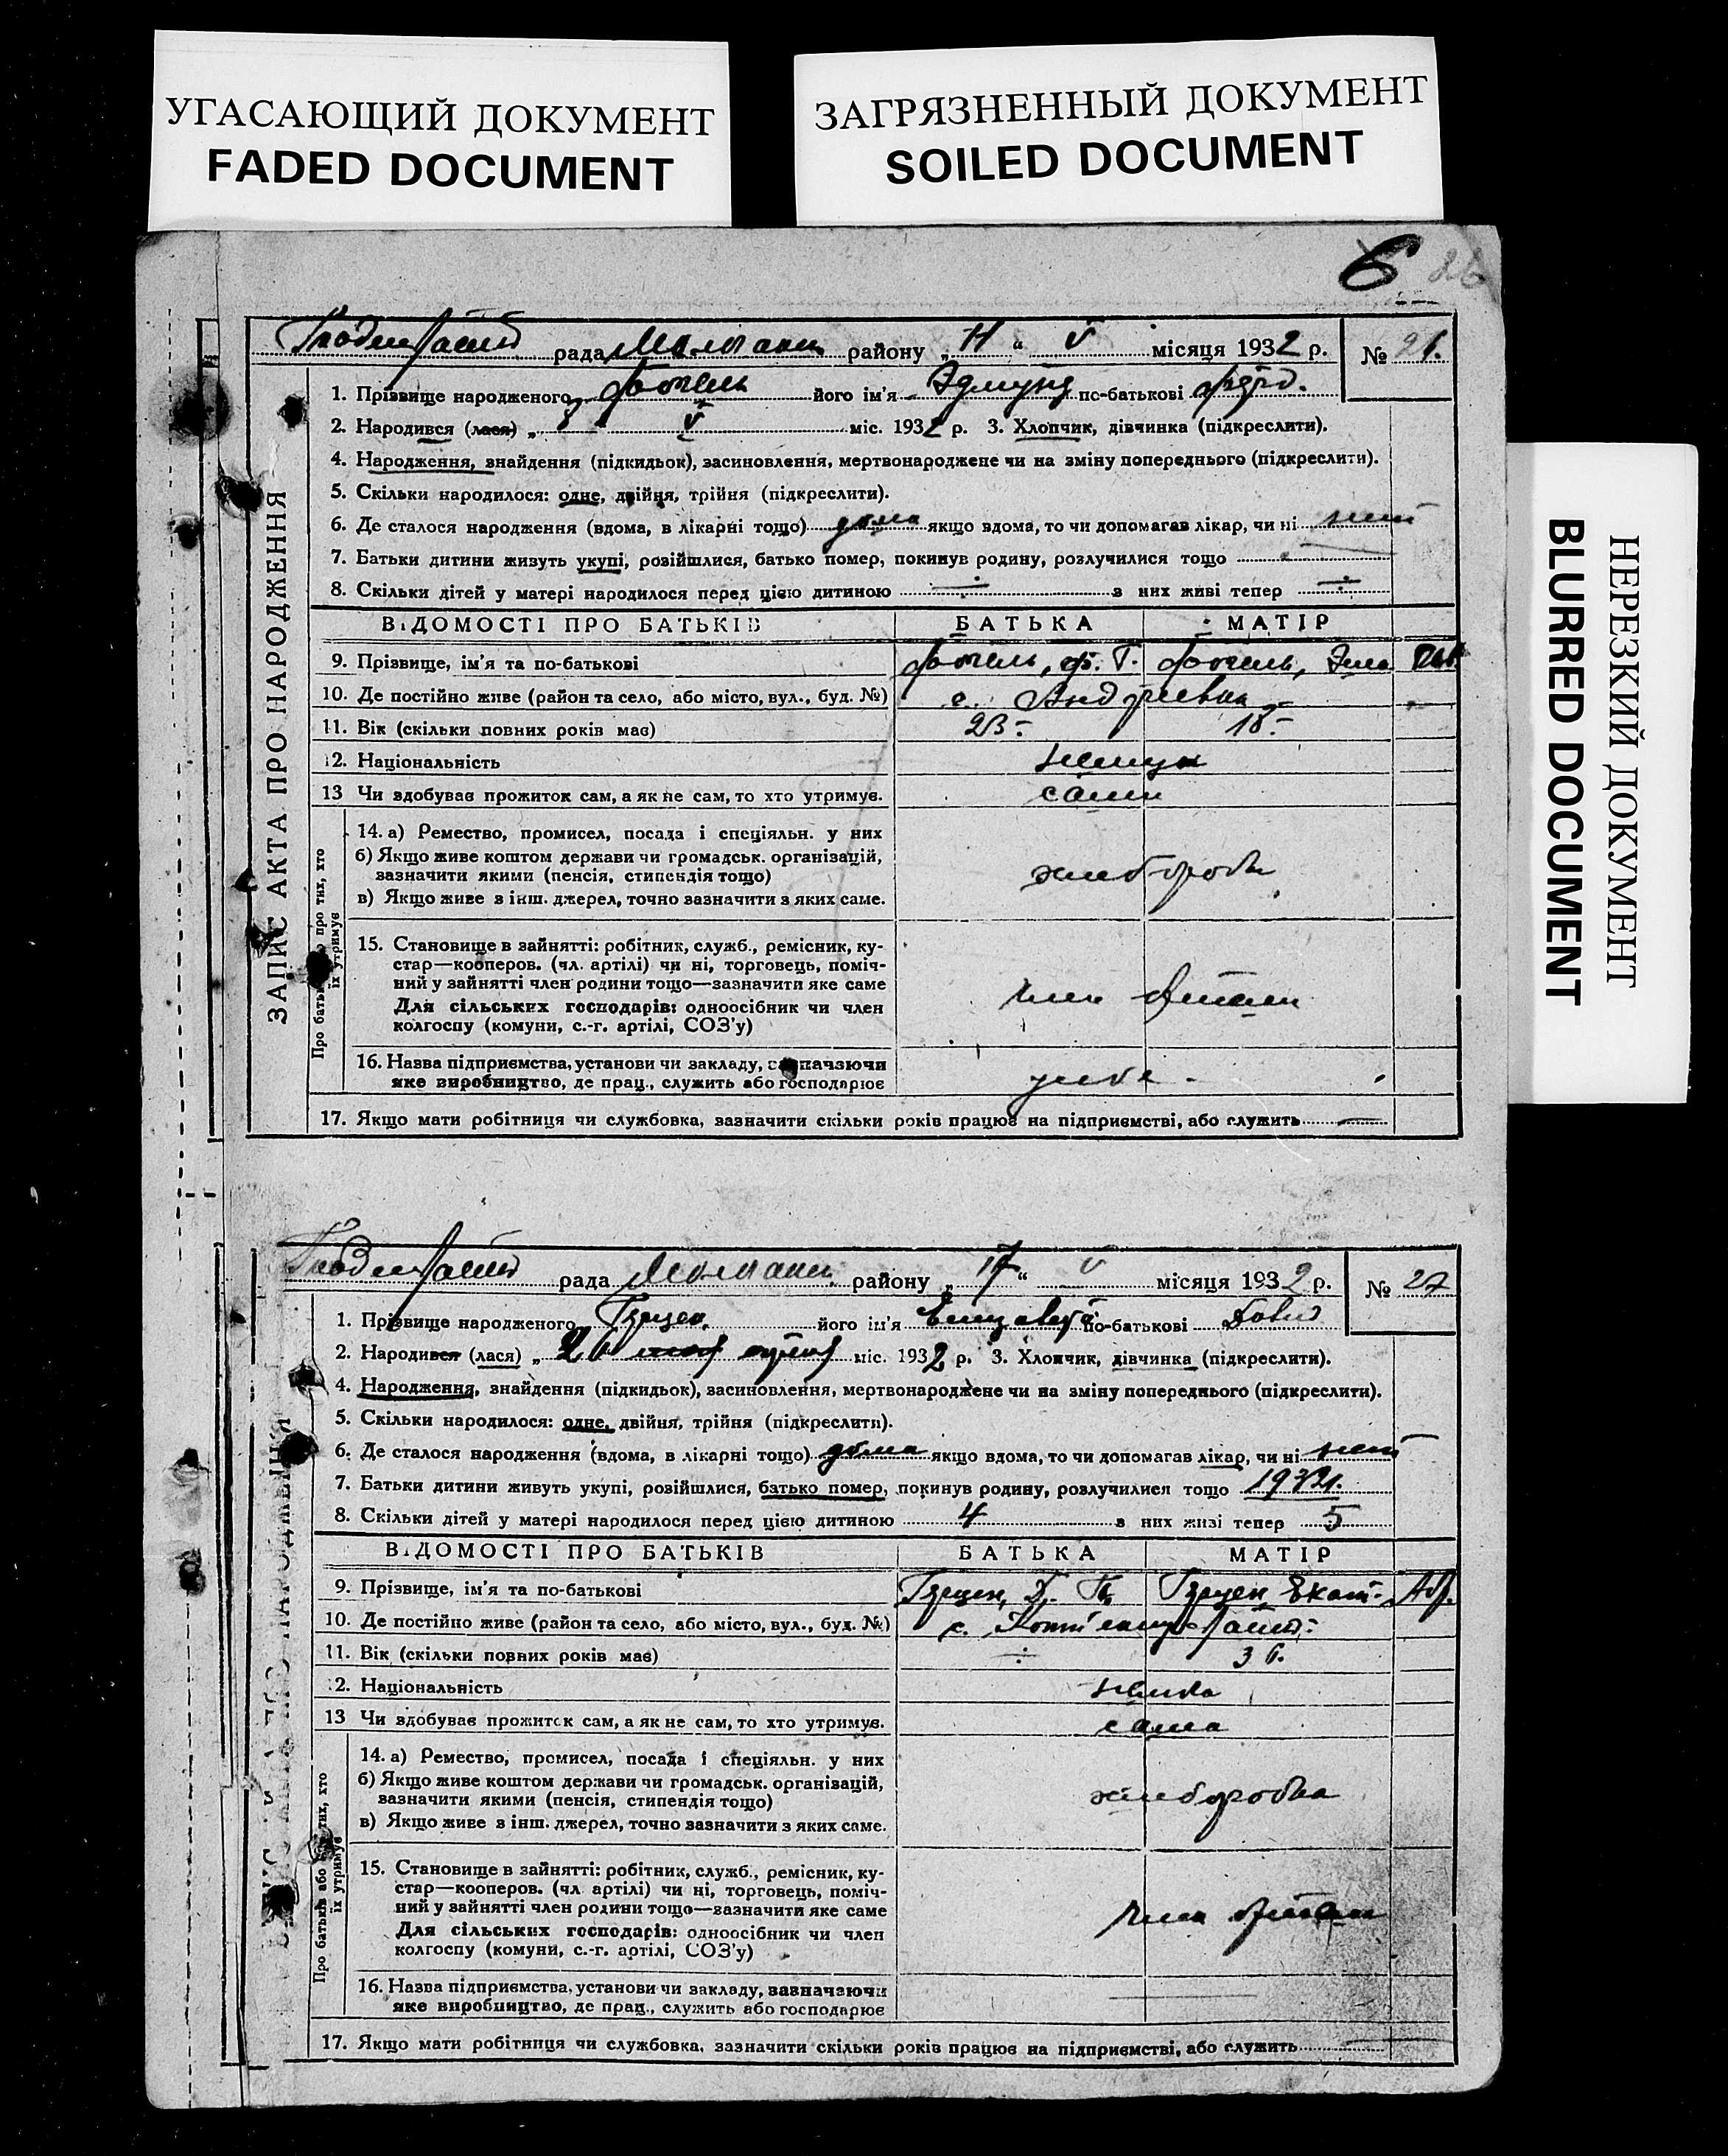 УГАСАЮЩИЙ ДОКУМЕНТ
FADED DOCUMENT
ЗАГРЯЗНЕННЫЙ ДОКУМЕНТ
SOILED DOCUMENT
НЕРЕЗКИЙ ДОКУМЕНТ
BLURRED DOCUMENT
6 26
ЗАПИС АКТА ПРО НАРОДЖЕННЯ
рада Молочанск району „ “ V місяця 1932 р. №
1. Прізвище народженого його ім'я Эдмунд по-батькові
2. Народився (лася) „ 8 V міс. 1932 р. 3. Хлопчик, дівчинка (підкреслити).
4. Народження, знайдення (підкидьок), засиновлення, мертвонароджене чи на зміну попереднього (підкреслити).
5. Скільки народилося: одне, двійня, трійня (підкреслити).
6. Де сталося народження (вдома, в лікарні тощо) дома якщо вдома, то чи допомагав лікар, чи ні нет
7. Батьки дитини живуть укупі, розійшлися, батько помер, покинув родину, розлучилися тощо
8. Скільки дітей у матері народилося перед цією дитиною ÷ з них живі тепер ÷
ВІДОМОСТІ ПРО БАТЬКІВ БАТЬКА МАТІР
9. Прізвище, ім'я та по-батькові
10. Де постійно живе (район та село, або місто, вул., буд. №) с. Андреевка
11. Вік (скільки повних років має) 23 18
12. Національність немцы
13 Чи здобував прожиток сам, а як не сам, то хто утримує. сами
Про батьків або про тих, хто їх утримує
14. а) Ремество, промисел, посада і спеціяльн. у них
б) Якщо живе коштом держави чи громадськ. організацій,
зазначити якими (пенсія, стипендія тощо) хлеборобы
в) Якщо живе з інш. джерел, точно зазначити з яких саме.
15. Становище в зайнятті: робітник, служб., ремісник, ку-
стар—кооперов. (чл. артілі) чи ні, торговець, поміч-
ний у зайнятті член родини тощо—зазначити яке саме
Для сільських господарів: одноосібник чи член
колгоспу (комуни, с.-г. артілі, СОЗ'у)
16. Назва підприємства, установи чи закладу, зазначаючи
яке виробництво, де прац., служить або господарює
17. Якщо мати робітниця чи службовка, зазначити скільки років працює на підприємстві, або служить
рада Молочанск району „ 17 “ V місяця 1932 р. № 27
1. Прізвище народженого його ім'я Елизавета по-батькові
2. Народився (лася) „ 26 міс. 1932 р. 3. Хлопчик, дівчинка (підкреслити).
4. Народження, знайдення (підкидьок), засиновлення, мертвонароджене чи на зміну попереднього (підкреслити).
5. Скільки народилося: одне, двійня, трійня (підкреслити).
6. Де сталося народження (вдома, в лікарні тощо) дома якщо вдома, то чи допомагав лікар, чи ні нет
7. Батьки дитини живуть укупі, розійшлися, батько помер, покинув родину, розлучилися тощо
8. Скільки дітей у матері народилося перед цією дитиною 4 з них живі тепер 5
ВІДОМОСТІ ПРО БАТЬКІВ БАТЬКА МАТІР
9. Прізвище, ім'я та по-батькові
10. Де постійно живе (район та село, або місто, вул., буд. №) с.
11. Вік (скільки повних років має) ÷ 36.
12. Національність немка
13 Чи здобував прожиток сам, а як не сам, то хто утримує. сама
Про батьків або про тих, хто їх утримує
14. а) Ремество, промисел, посада і спеціяльн. у них
б) Якщо живе коштом держави чи громадськ. організацій,
зазначити якими (пенсія, стипендія тощо) хлеборобка
в) Якщо живе з інш. джерел, точно зазначити з яких саме.
15. Становище в зайнятті: робітник, служб., ремісник, ку-
стар—кооперов. (чл. артілі) чи ні, торговець, поміч-
ний у зайнятті член родини тощо—зазначити яке саме
Для сільських господарів: одноосібник чи член
колгоспу (комуни, с.-г. артілі, СОЗ'у)
16. Назва підприємства, установи чи закладу, зазначаючи
яке виробництво, де прац., служить або господарює
17. Якщо мати робітниця чи службовка, зазначити скільки років працює на підприємстві, або служить